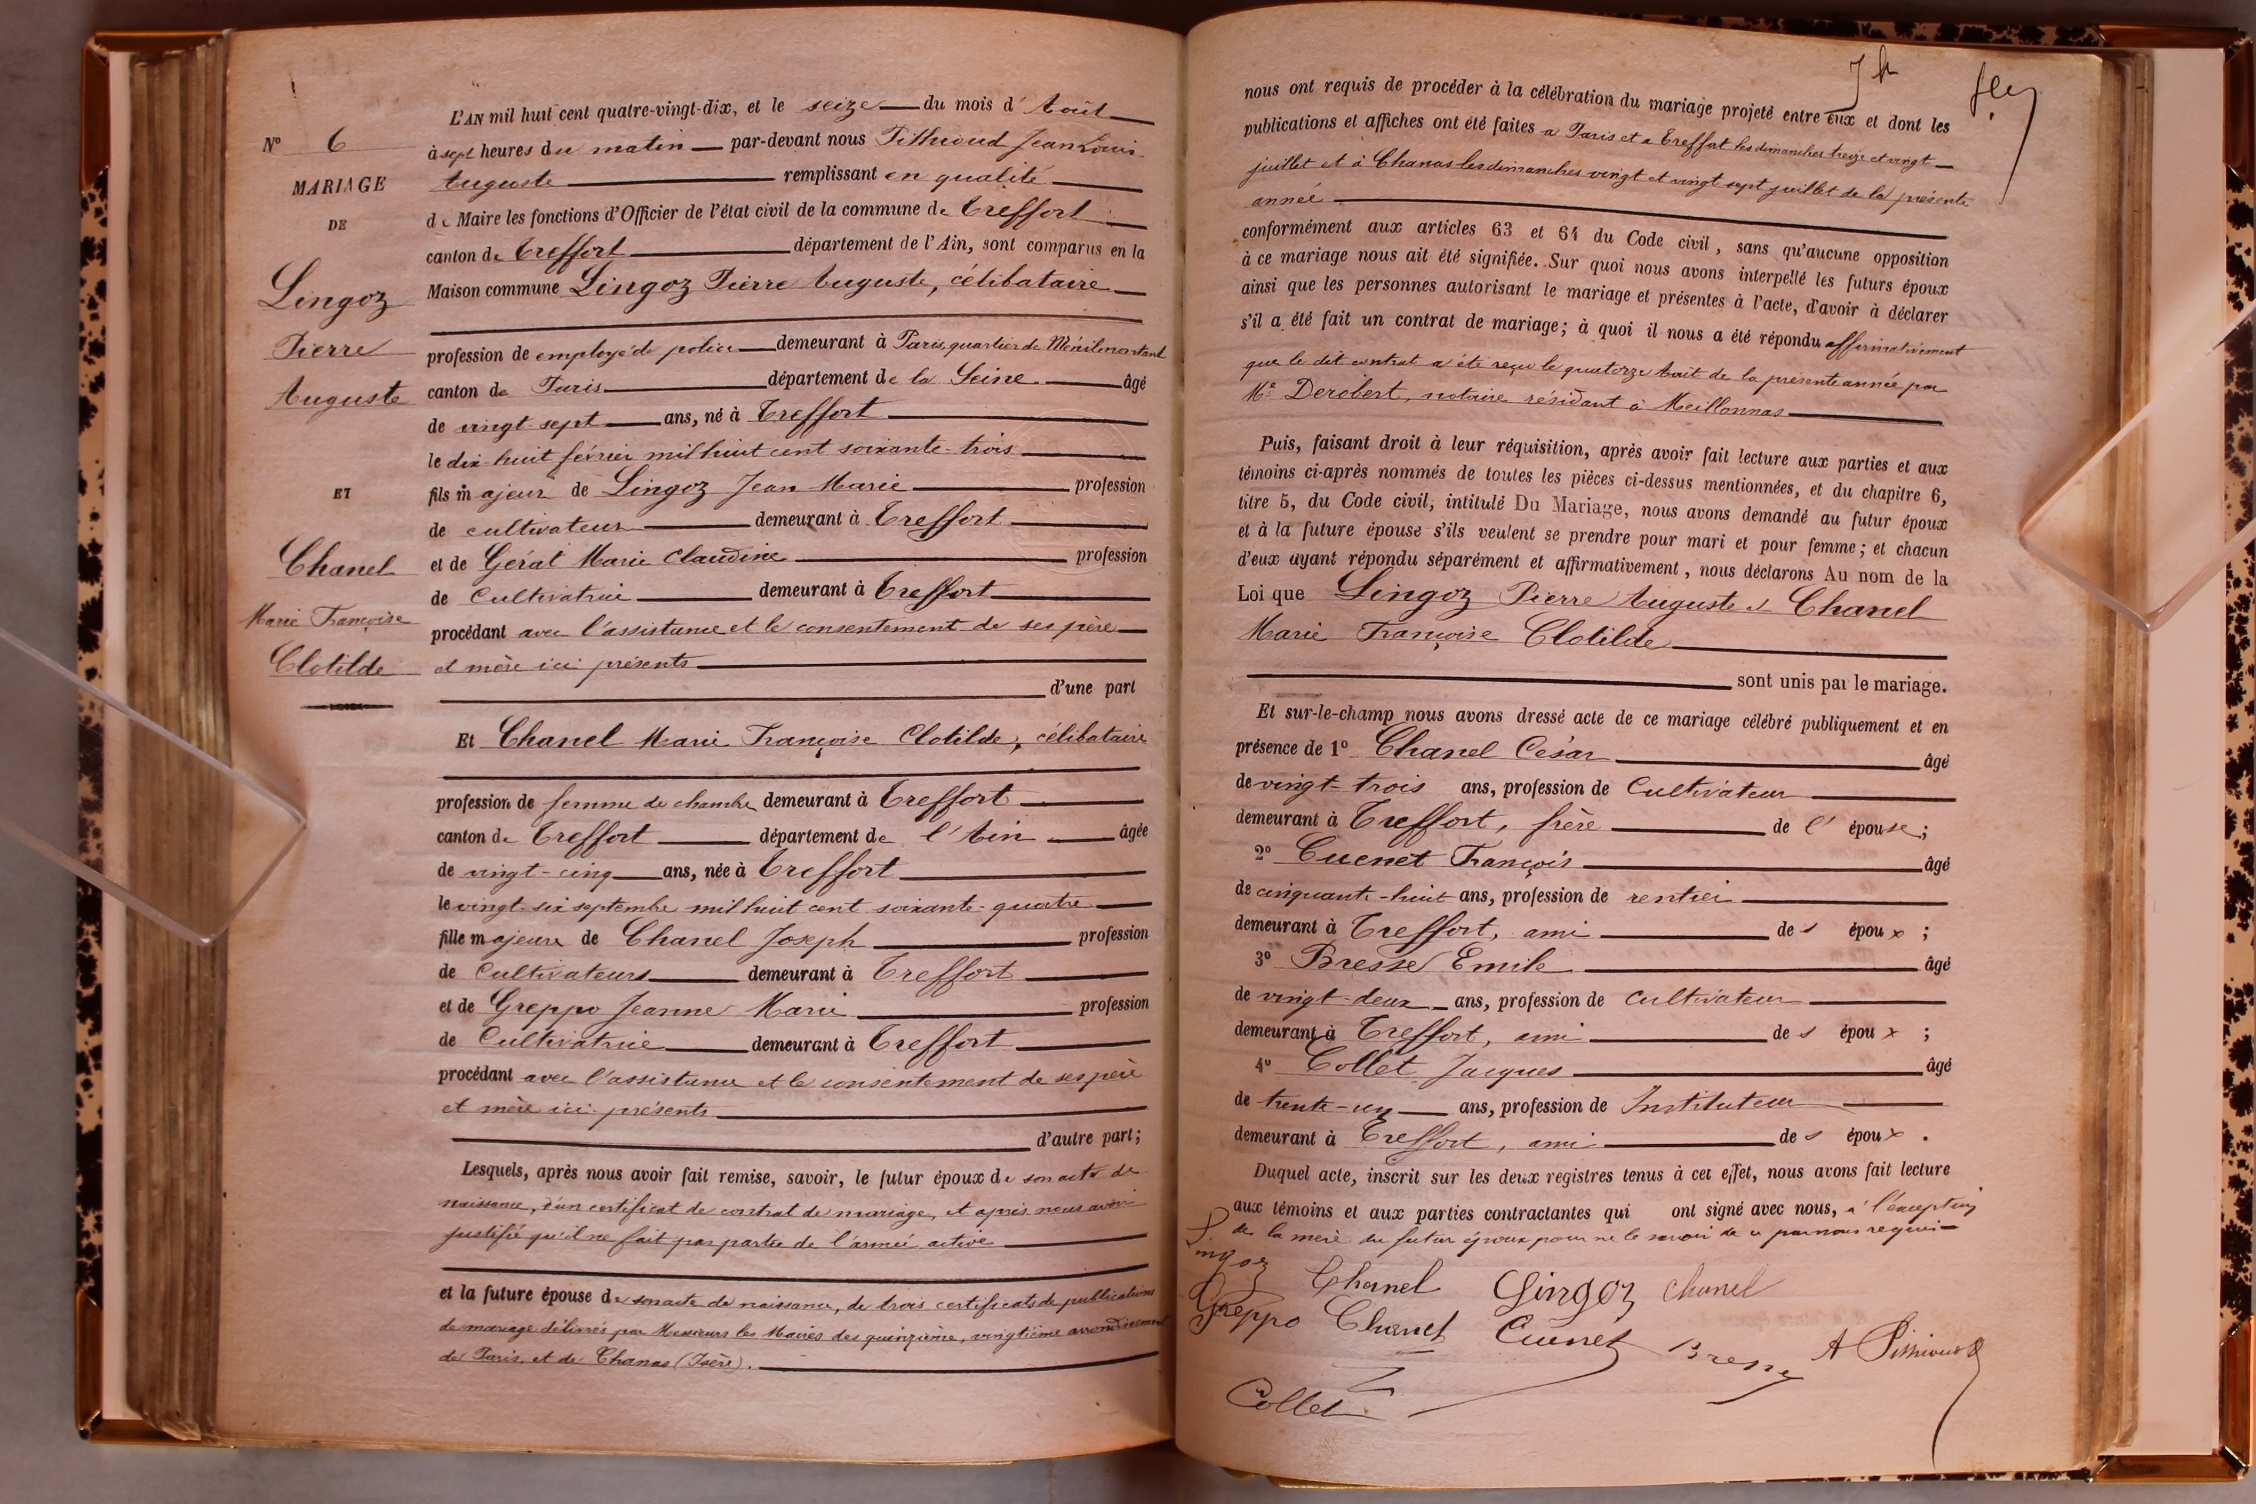 L'AN mil huit cent quatre-vingt-dix, et le seize du mois d'Août
N° 6
à sept heures du matin par-devant nous Pithioud Jean Louis
MARIAGE
Auguste remplissant en qualité
DE
de Maire les fonctions d'Officier de l'état civil de la commune de Treffort
canton de Treffort département de l'Ain, sont comparus en la
Lingoz
Maison commune Lingoz Pierre Auguste, célibataire
Pierre
profession de employé de police demeurant à Paris, quartier de Ménilmontant
Auguste
canton de Paris département de la Seine âgé
de vingt-sept ans, né à Treffort
le dix-huit février mil huit cent soixante-trois
ET
fils majeur de Lingoz Jean Marie profession
de cultivateur demeurant à Treffort
Chanel
et de Gérat Marie Claudine profession
de Cultivatrice demeurant à Treffort
Marie Françoise
procédant avec l'assistance et le consentement de ses père
Clotilde
et mère ici présents
d'une part
Et Chanel Marie Françoise Clotilde, célibataire
profession de femme de chambre demeurant à Treffort
canton de Treffort département de l'Ain âgée
de vingt-cinq ans, née à Treffort
le vingt-six septembre mil huit cent soixante-quatre
fille majeure de Chanel Joseph profession
de Cultivateurs demeurant à Treffort
et de Greppo Jeanne Marie profession
de Cultivatrice demeurant à Treffort
procédant avec l'assistance et le consentement de ses père
et mère ici présents
d'autre part;
Lesquels, après nous avoir fait remise, savoir, le futur époux de son acte de
naissance, d'un certificat de contrat de mariage, et après nous avoir
justifié qu'il ne fait pas partie de l'armée active
et la future épouse de son acte de naissance, de trois certificats de publications
de mariage délivrés par Messieurs les Maires des quinzième, vingtième arrondissement
de Paris, et de Chanas (Isère).
nous ont requis de procéder à la célébration du mariage projeté entre eux et dont les
publications et affiches ont été faites à Paris et à Treffort les dimanches treize et vingt
juillet et à Chanas les dimanches vingt et vingt sept juillet de la présente
année
conformément aux articles 63 et 64 du Code civil, sans qu'aucune opposition
à ce mariage nous ait été signifiée. Sur quoi nous avons interpellé les futurs époux
ainsi que les personnes autorisant le mariage et présentes à l'acte, d'avoir à déclarer
s'il a été fait un contrat de mariage; à quoi il nous a été répondu affirmativement
que le dit contrat a été reçu le quatorze Août de la présente année par
Me Derobert, notaire résidant à Meillonnas
Puis, faisant droit à leur réquisition, après avoir fait lecture aux parties et aux
témoins ci-après nommés de toutes les pièces ci-dessus mentionnées, et du chapitre 6,
titre 5, du Code civil, intitulé Du Mariage, nous avons demandé au futur époux
et à la future épouse s'ils veulent se prendre pour mari et pour femme; et chacun
d'eux ayant répondu séparément et affirmativement, nous déclarons Au nom de la
Loi que Lingoz Pierre Auguste et Chanel
Marie Françoise Clotilde
sont unis par le mariage.
Et sur-le-champ nous avons dressé acte de ce mariage célébré publiquement et en
présence de 1° Chanel César âgé
de vingt-trois ans, profession de Cultivateur
demeurant à Treffort, frère de l'épouse;
2° Cuenet François âgé
de cinquante-huit ans, profession de rentier
demeurant à Treffort, ami des époux;
3° Bresse Emile âgé
de vingt-deux ans, profession de Cultivateur
demeurant à Treffort, ami des époux;
4° Collet Jacques âgé
de trente-un ans, profession de Instituteur
demeurant à Treffort, ami des époux.
Duquel acte, inscrit sur les deux registres tenus à cet effet, nous avons fait lecture
aux témoins et aux parties contractantes qui ont signé avec nous, à l'exception
de la mère du futur époux pour ne le savoir de ce par nous requise
Lingoz Chanel Lingoz Chanel
Greppo Chanel Cuenet Bresse A Pithioud
Collet